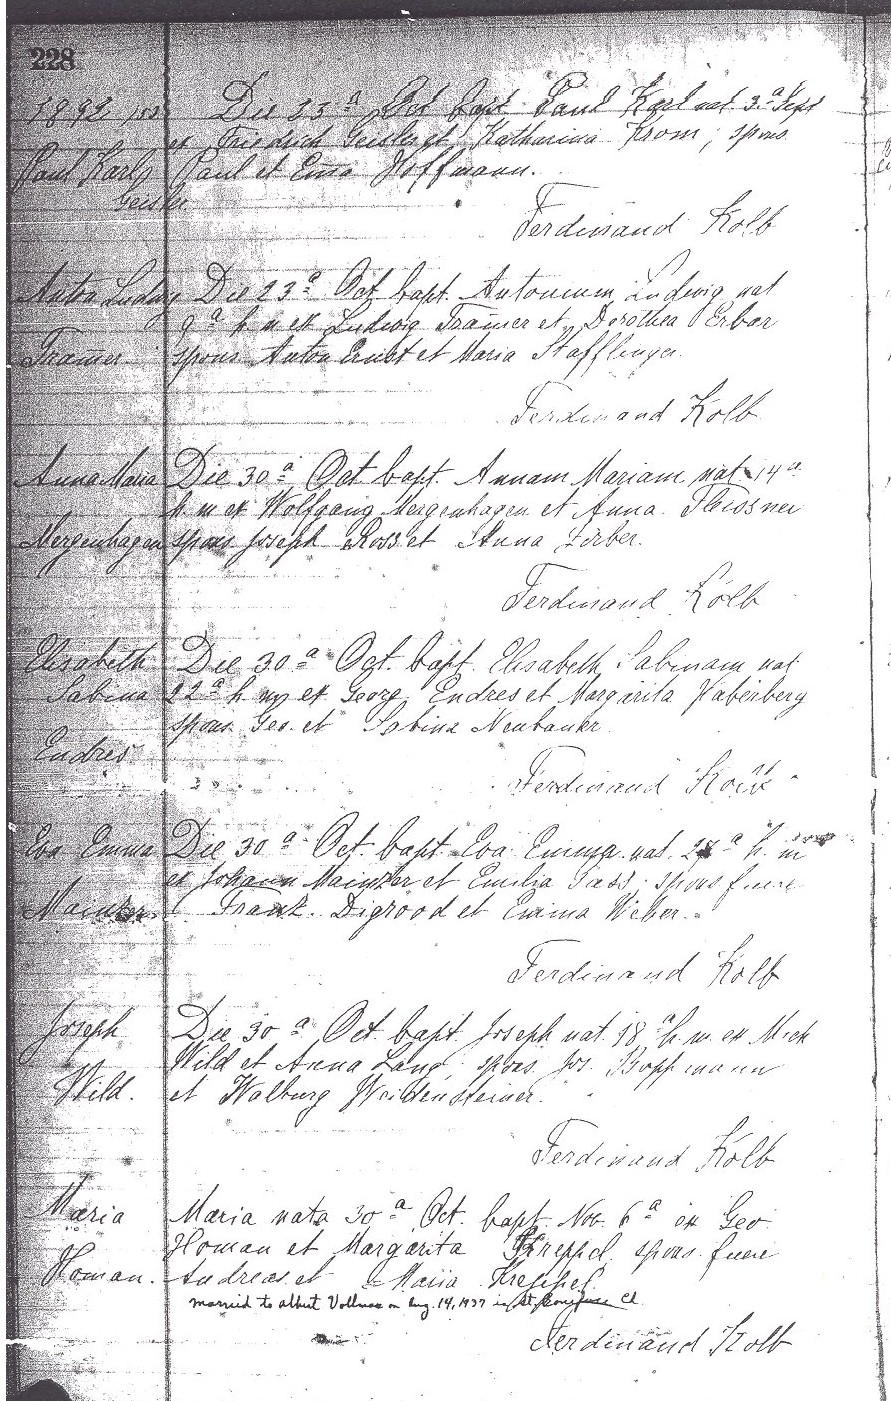 228
1892
Die 23ª Oct bapt Paul Karl nat 3ª Sept
ex Friedrich Geisler et Katharina Krom; spons
Paul Karl Paul et Emma Hoffmann.
Geisler
Ferdinand Kolb
Anton Ludwig Die 23ª Oct bapt. Antonium Ludwig nat
9ª h m ex Ludwig Tramer et Dorothea Erbar
Tramer spons Anton Ernst et Maria Stafflinger
Ferdinand Kolb
Anna Maria Die 30ª Oct bapt. Annam Mariam nat 14ª
h m ex Wolfgang Mergenhagen et Anna Fleissner
Mergenhagen spons Joseph Ross et Anna Zerber.
Ferdinand Kolb
Elisabeth Die 30ª Oct bapt. Elisabeth Sabinam nat
Sabina 22ª h m ex Georg Endres et Margarita Haberberg
spons Geo. et Sabina Neubauer
Endres
Ferdinand Kolb
Eva Emma Die 30ª Oct. bapt. Eva Emma nat. 27ª h. m
ex Johann Mainzer et Emilia Sass; spons fuere
Mainzer Frank Digrood et Emma Weber.
Ferdinand Kolb
Joseph Die 30ª Oct. bapt. Joseph nat 18ª h. m. ex Mich
Wild et Anna Lang, spons. Jos. Bopfmann
Wild. et Walburg Weidensteiner.
Ferdinand Kolb
Maria Maria nata 30ª Oct. bapt. Nov. 6ª ex Geo
Homan et Margarita Kreppel, spons. fuere
Homan. Andreas et Maria Kreppel
married to Albert Vollmer on Aug. 14, 1937 in St. Boniface Cl
Ferdinand Kolb